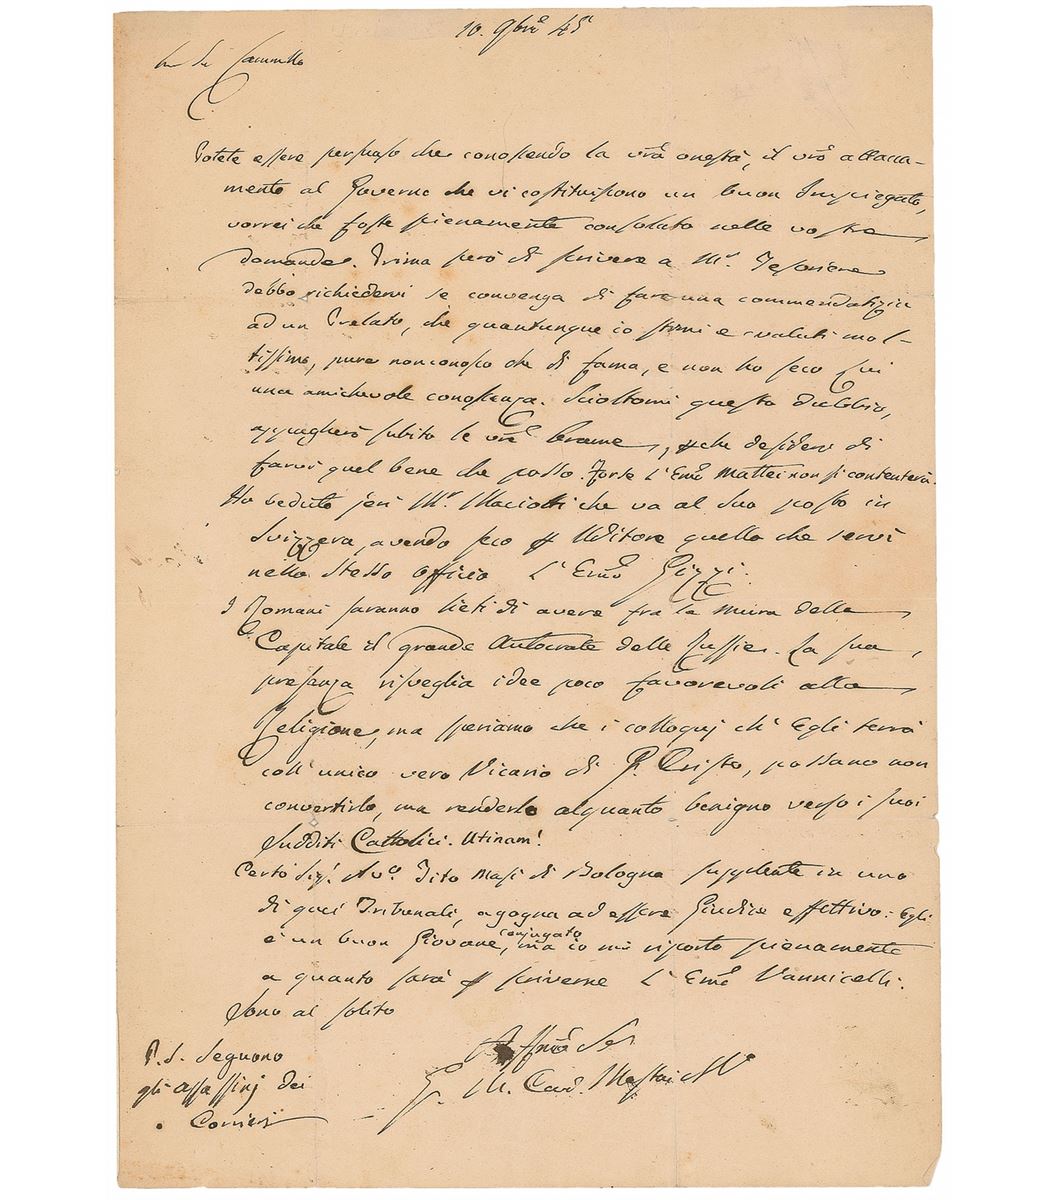 10. 9bre 45
Camillo
Potete essere persuaso che conoscendo la vrã onestà, il vrõ attacca-
mento al Governo che vi costituiscono un buon Impiegato,
vorrei che foste pienamente consolato nelle vostre
domande. Prima però di scrivere a Mr. Tesoriere
debbo richiedervi se convenga di fare una commendatizia
ad un Prelato, che quantunque io stimi e valuti mol-
tissimo, pure non conosco che di fama, e non ho seco lui
una amichevole conoscenza. Scioltomi questo dubbio,
appagherò subito le vrẽ brame, che desidero di
farvi quel bene che posso. Forse l'Emõ Mattei non si contenterà.
Ho veduto jeri Mr. Maciotti che va al suo posto in
Svizzera avendo seco Uditore quello che servì
nello stesso officio l'Emõ Gizzi.
I Romani saranno lieti di avere fra le mura della
Capitale il grande Autocrate delle Russie. La sua
presenza risveglia idee poco favorevoli alla
Religione, ma speriamo che i colloquj ch'Egli terrà
coll'unico vero Vicario di G. Cristo, possano non
convertirlo, ma renderlo alquanto benigno verso i suoi
sudditi Cattolici. Utinam!
Certo Sigr. Avo. Tito Masi di Bologna supplente in uno
di quei Tribunali, agogna ad essere Giudice effettivo: Egli
è un buon Giovane, conjugato, ma io mi riporto pienamente
a quanto sarà scriverne l'Emõ Vannicelli.
Sono al solito
Affmõ Ser
G. M. Card. Mastai
P.S. Seguono
gli assassinj dei
Corrieri